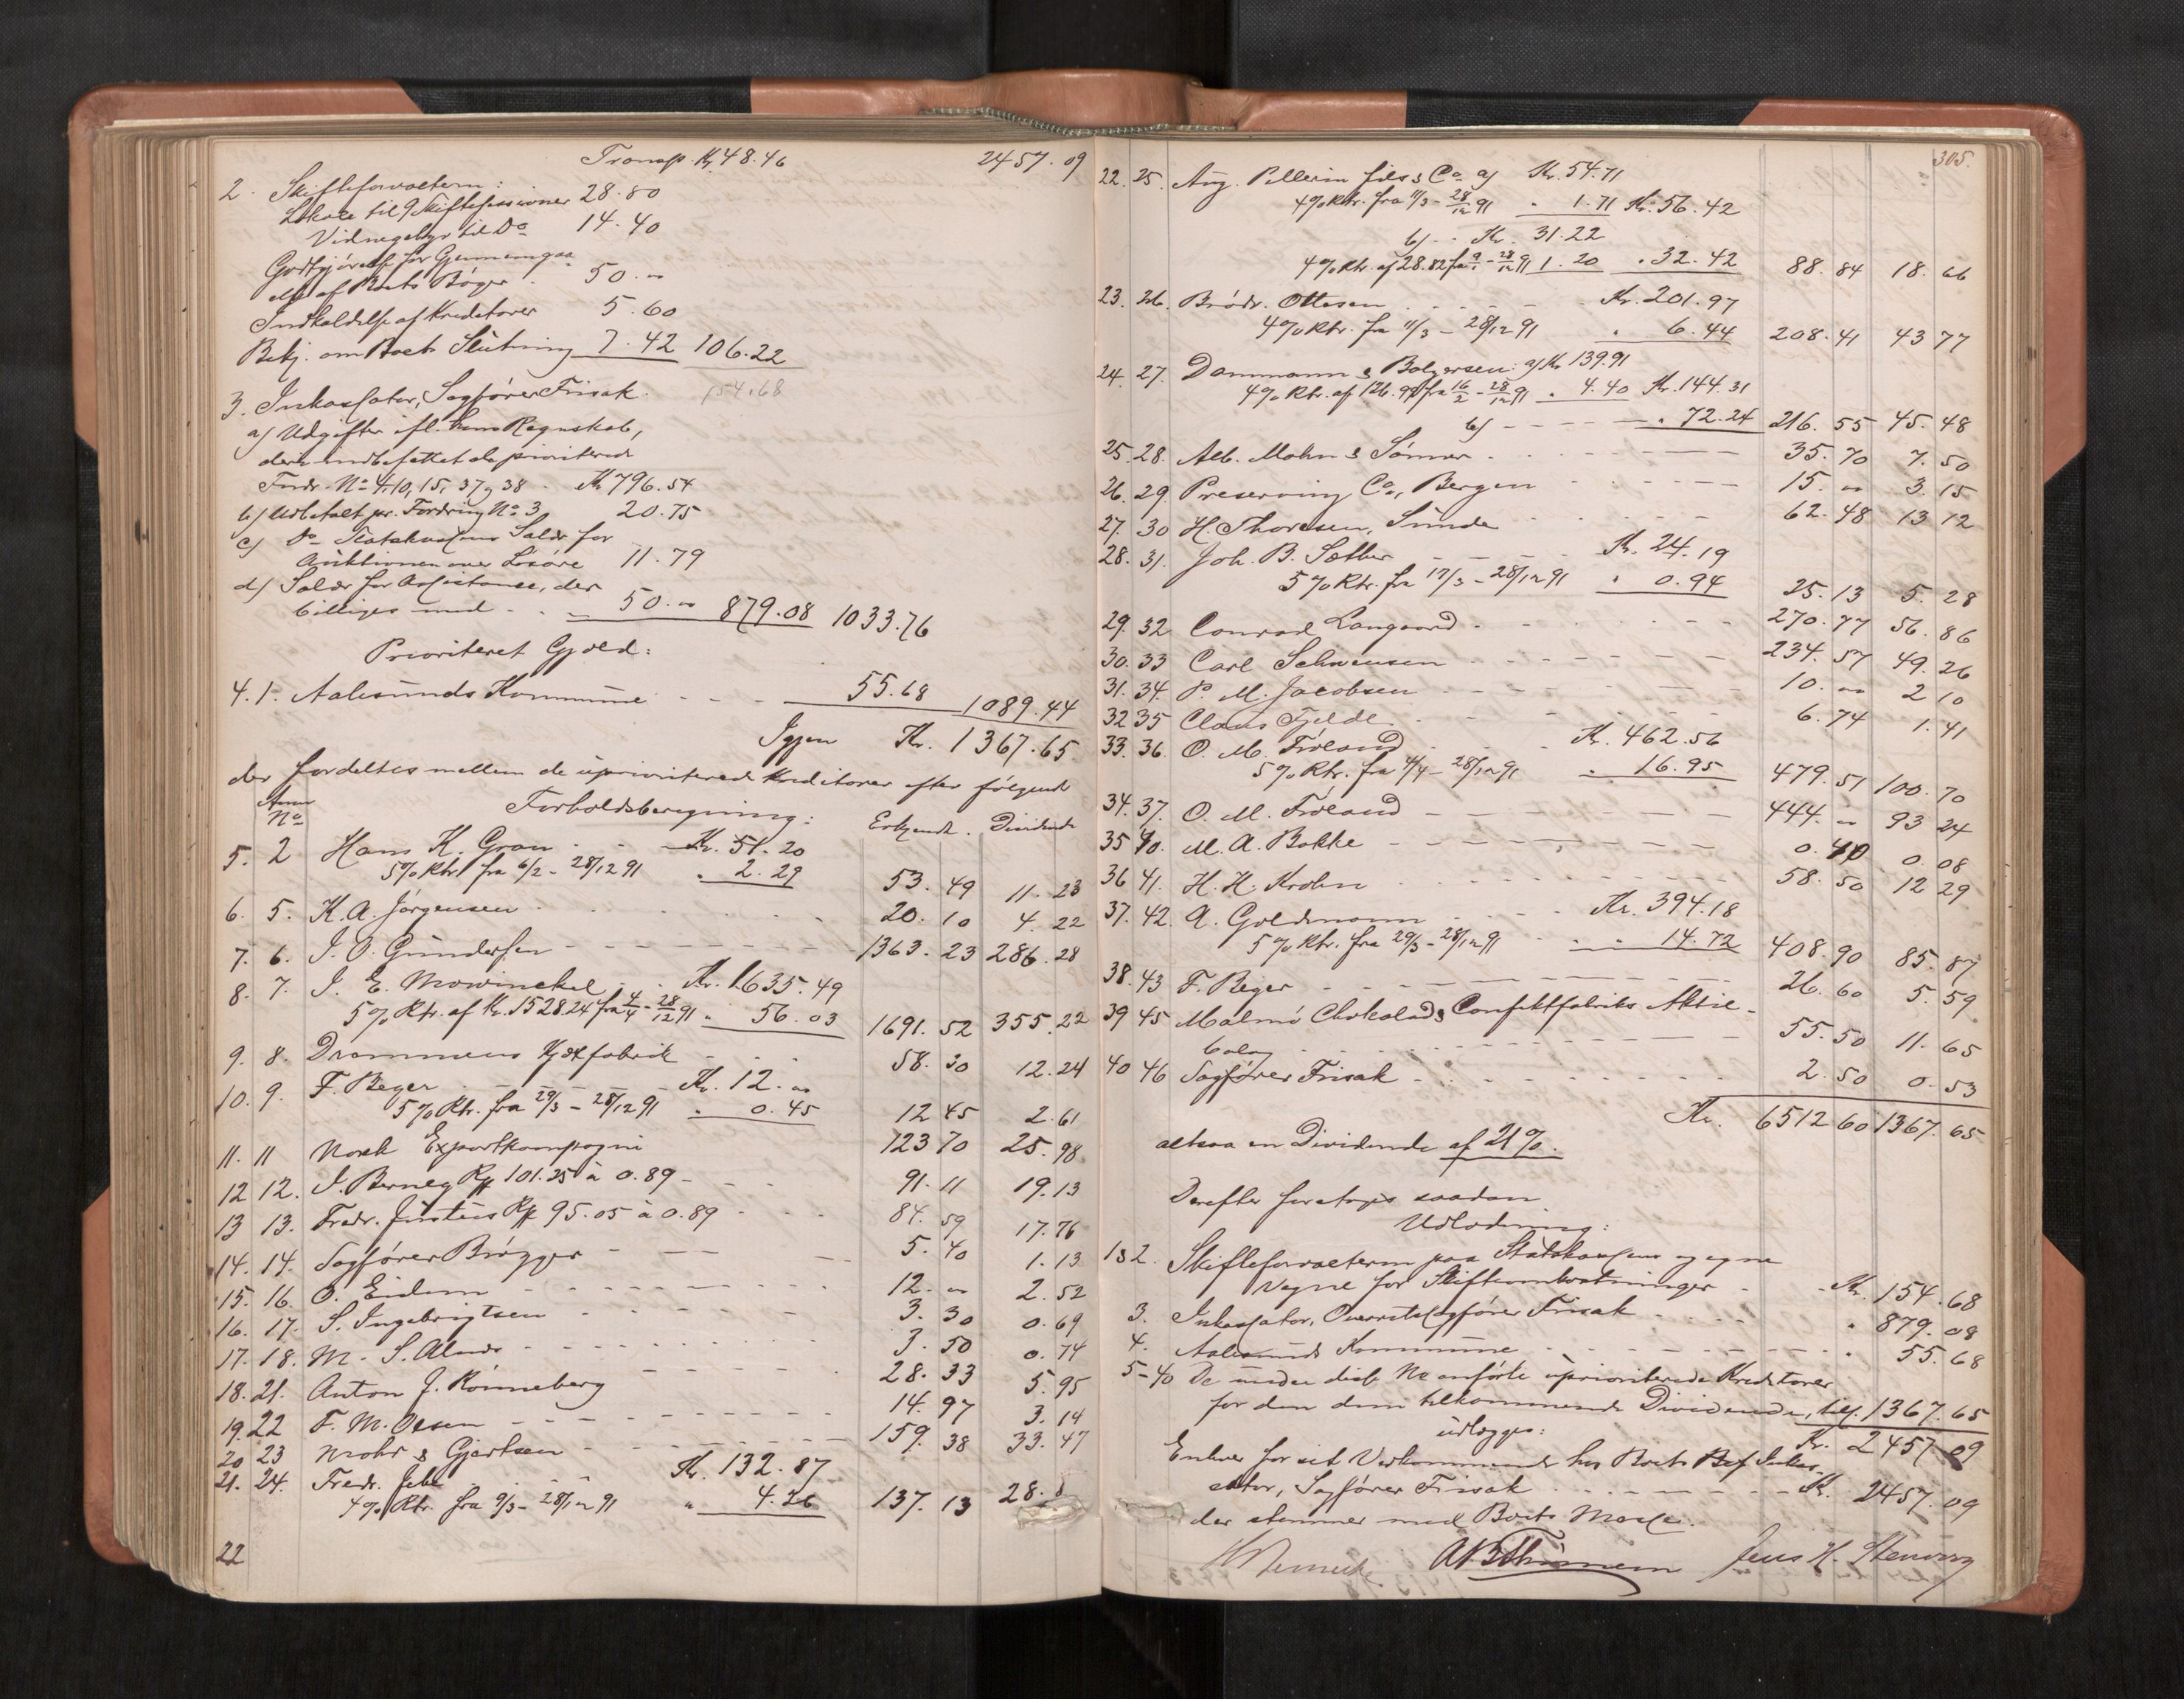 Transp. Kr. 48.46 2457.09
2. Skifteforvalteren:
Lokale til 9 Skiftesessioner 28.80
Vidnegebyr til Do 14.40
Godtgjørelse for Gjennemgaa-
else af Boets Bøger . 50.„
Indkaldelse af Kreditorer 5.60
Bekj. om Boets Slutning 7.42 106.22
154.68
3. Inkassator, Sagfører Frisak.
a) Udgifter ifl. hans Regnskab,
deri indbefattet de prioriterede
Fordr. No 4, 10, 15, 37 og 38 - Kr 796.54
b) Udbetalt pr. Fordring No 3 20.75
c) Do Statskassens Salær for
Auktionen over Løsøre 11.79
d) Salær for Assistance, der
billiges med - - - 50.„ 879.08 1033.76
Prioriteret Gjæld:
4. 1. Aalesunds Kommune - - 55.68 1089.44
Igjen Kr. 1367.65
der fordeltes mellem de uprioriterede Kreditorer efter følgende
Anm No Forholdsberegning: Erkjendt. Dividende
5. 2 Hans K. Gran - - Kr. 51.20
5% Rtr. fra 6/2 - 28/12 91 „ 2.29 53.49 11.23
6. 5. K. A. Jørgensen - - - 20.10 4.22
7. 6. I. O. Gundersen - - - 1363.23 286.28
8. 7. I. E. Mowinckel - Kr. 1635.49
5% Rtr. af Kr. 1528.24 fra 4/4 - 28/12 91 „ 56.03 1691.52 355.22
9. 8. Drammens Kjæxfabrik - - - 58.30 12.24
10. 9. F. Beyer - - - Kr. 12.„
5% Rtr. fra 29/3 - 28/12 91 „ 0.45 12.45 2.61
11. 11 Norsk Exportkompagni 123.70 25.98
12 12. I. Berneg Rf 101.35 à 0.89 - - - 91.11 19.13
13 13. Fredr. Justus Rf 95.05 à 0.89 - - - 84.59 17.76
14. 14. Sagfører Brøgger - - - 5.40 1.13
15. 16. O. Eidem - - - 12.„ 2.52
16. 17. S. Ingebrigtsen - - - 3.30 0.69
17. 18. M. S. Alnes - - - 3.50 0.74
18. 21. Anton J. Rønneberg - - - 28.33 5.95
19. 22 F. M. Olsen - - - 14.97 3.14
20 23 Mohr & Gjertsen - - - 159.38 33.47
21. 24. Fredr. Jebe - - Kr. 132.87
4% Rtr. fra 9/3 - 28/12 91 „ 4.26 137.13 28.8
22
305.
22. 25. Aug. Pellerin fils & Co a) Kr. 54.71
4% Rtr. fra 11/3 - 28/12 91 „ 1.71 Kr. 56.42
b) - - Kr. 31.22
4% Rtr. af 28.82 fra - 28/12 91 1.20 „ 32.42 88.84 18.66
23. 26. Brødr. Ottesen - - - Kr. 201.97
4% Rtr. fra 11/3 - 28/12 91 „ 6.44 208.41 43 77
24. 27. Dammann & Bolgersen: a) Kr 139.91
4% Rtr. af 126.99 fra 16/2 - 28/12 91 „ 4.40 Kr. 144.31
b) - - - - „ 72.24 216.55 45.48
25. 28. Alb. Mohn & Sønner - - - 35.70 7.50
26. 29. Preserving Co, Bergen - - - 15.„ 3.15
27. 30 H. Thoresen, Sunde - - - 62.48 13 12
28. 31. Joh. B. Sætber - - Kr. 24.19
5% Rtr. fra 17/3 - 28/12 91 „ 0.94 25.13 5.28
29. 32 Conrad Langaard - - - 270.77 56.86
30. 33 Carl Schwensen - - - 234.57 49.26
31. 34. P. M. Jacobsen - - - 10.„ 2 10
32 35 Claus Fjelde - - - 6.74 1.41
33. 36. O. M. Frøland - - Kr. 462.56
5% Rtr. fra 4/4 - 28/12 91 „ 16.95 479.51 100.70
34. 37. O. M. Frøland - - - 444.„ 93 24
35 40. M. A. Bakke - - - 0.40 0.08
36 41. H. H. Krohn - - - 58.50 12 29
37. 42. A. Goldmann - - - Kr. 394.18
5% Rtr. fra 29/3 - 28/12 91 „ 14.72 408.90 85.87
38. 43 F. Beyer - - - 26.60 5.59
39 45 Malmø Chokolad & Confektfabriks Aktie-
bolag - - - 55.50 11.65
40 46 Sagfører Frisak - - - 2.50 0.53
Kr. 6512 60 1367.65
altsaa en Dividende af 21%.
Derefter foretoges saadan
Udlodning:
1 & 2. Skifteforvalteren paa Statskassens og egne
Vegne for Skifteomkostninger - - Kr. 154.68
3. Inkassator, Overretssagfører Frisak - - - „ 879.08
4. Aalesunds Kommune - - - „ 55.68
5-40 De under disse No anførte uprioriterede Kreditorer
for den dem tilkommende Dividende, tils. 1367.65
udlægges: Kr. 2457.09
Enhver for sit Vedkommende hos Boets Inkas-
sator, Sagfører Frisak - - - Kr. 2457.09
der stemmer med Boets Masse.
Jens H. Stenvorg